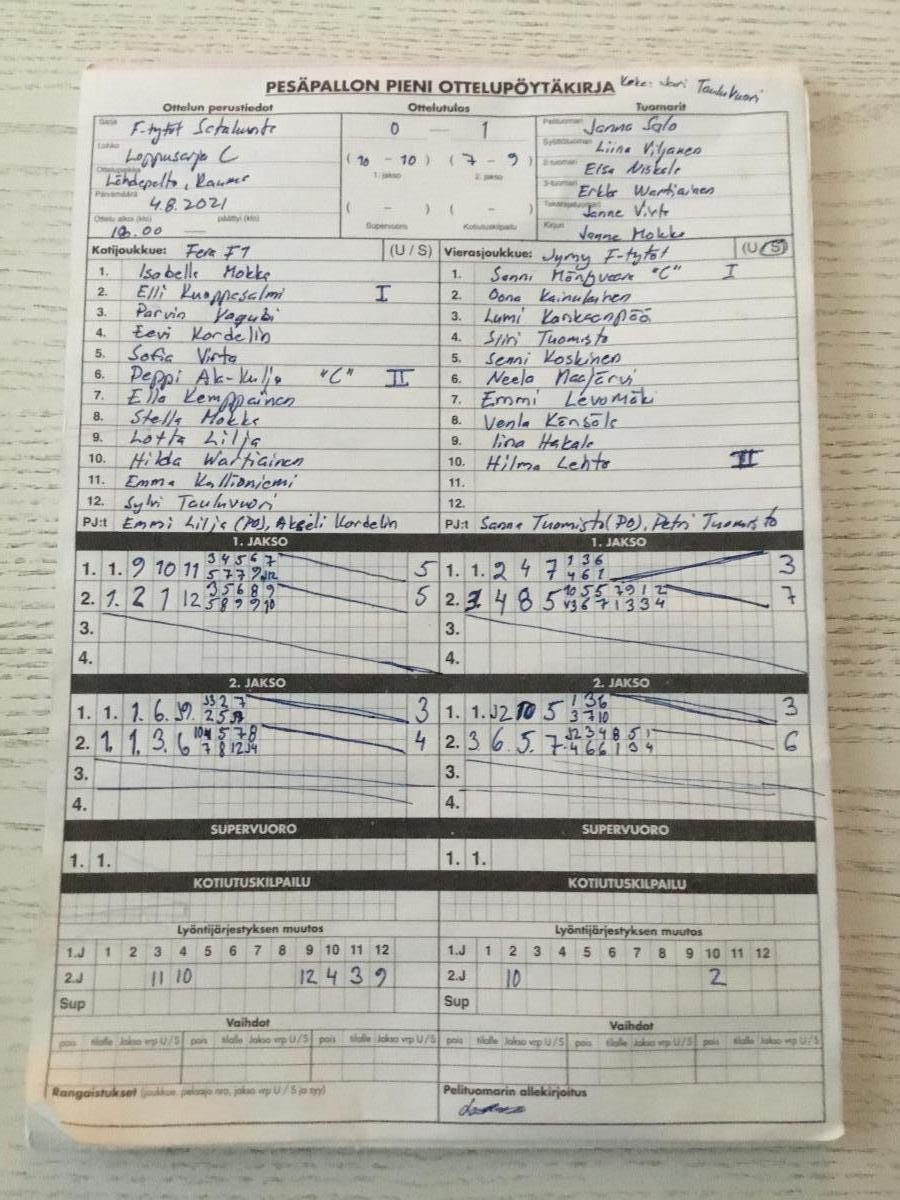 PESÄPALLON PIENI OTTELUPÖYTÄKIRJA Taulukuori
Ottelun perustiedot Ottelutulos Tuomarit
Sarja F-tytöt Satakunta 0 — 1 Pelituomari Janna Salo
Lohko Loppusarja C (10 - 10) (7 - 9) Syöttötuomari Liina Viljanen
1. jakso 2. jakso 2-tuomari Elsa Niskala
Ottelupaikka Lähdepelto, Rauma 3-tuomari Erkka Wartiainen
Päivämäärä 4.8.2021 ( - ) ( - ) Takarajatuomari Janne Virta
Ottelu alkoi (klo) päättyi (klo) Supervuoro Kotiutuskilpailu Kirjuri Janne Mokka
18.00 —
Kotijoukkue: Fera F1 (U / S) Vierasjoukkue: Jymy F-tytöt (U / S)
1. Isabella Mokka 1. Sanni "C" I
2. Elli Kuoppasalmi I 2. Oona Kainulainen
3. Parvin Yagubi 3. Lumi Kankaanpää
4. Eevi Kordelin 4. Siiri Tuomisto
5. Sofia Virta 5. Senni Koskinen
6. Peppi Ala-Kulju "C" II 6. Neela Maajärvi
7. Ella Kemppainen 7. Emmi Levomäki
8. Stella Mokka 8. Venla Känsälä
9. Lotta Lilja 9. Iina Hakala
10. Hilda Wartiainen 10. Hilma Lehto II
11. Emma Kallioniemi 11.
12. Sylvi Tauluvuori 12.
PJ:t Emmi Lilja (PO), Akseli Kordelin PJ:t Sanna Tuomisto (PO), Petri Tuomisto
1. JAKSO 1. JAKSO
1. 1. 9 10 11 3 4 5 6 7 5 1. 1. 2 4 7 1 3 6 3
5 7 7 9 12 4 6 1
2. 1. 2 1 12 3 5 6 8 9 5 2. 3. 4 8 5 10 5 5 7 9 1 2 7
5 8 9 9 10 3 6 7 1 3 3 4
3. 3.
4. 4.
2. JAKSO 2. JAKSO
1. 1. 1. 6. 2 7 3 1. 1. 12 10 5 1 3 6 3
2 5 3 7 10
2. 1. 1. 3. 6 5 7 8 4 2. 3. 6. 5. 7. 12 3 4 8 5 1 6
7 8 12 4 6 6 1 3 4
3. 3.
4. 4.
SUPERVUORO SUPERVUORO
1. 1. 1. 1.
KOTIUTUSKILPAILU KOTIUTUSKILPAILU
Lyöntijärjestyksen muutos Lyöntijärjestyksen muutos
1.J 1 2 3 4 5 6 7 8 9 10 11 12 1.J 1 2 3 4 5 6 7 8 9 10 11 12
2.J 11 10 12 4 3 9 2.J 10 2
Sup Sup
Vaihdot Vaihdot
pois tilalle Jakso vrp U / S pois tilalle Jakso vrp U / S pois tilalle Jakso vrp U / S pois tilalle Jakso vrp U / S
Rangaistukset (joukkue, pelaaja nro, jakso vrp U / S ja syy) Pelituomarin allekirjoitus